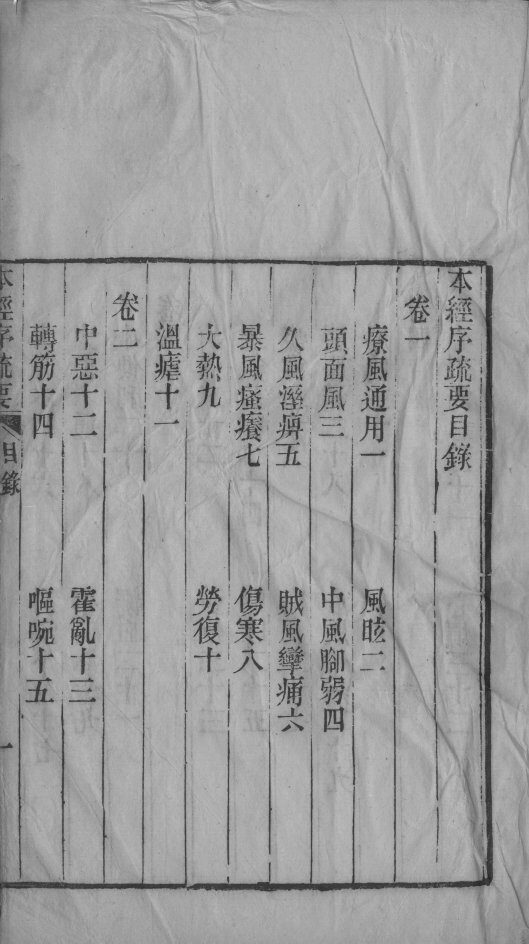 本經序疏要目錄
卷一
療風通用一　風眩二
頭面風三　中風腳弱四
久風溼痹五　賊風攣痛六
暴風瘙癢七　傷寒八
大熱九　勞復十
溫瘧十一
卷二
中惡十二　霍亂十三
轉筋十四　嘔啘十五
本經序疏要　目錄　一